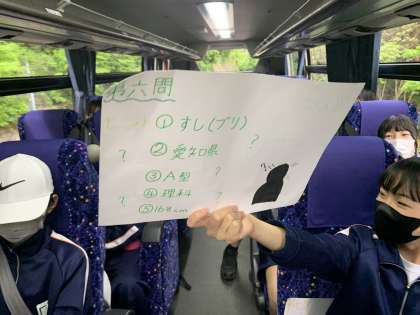 第六問
① すし(ブリ)
② 愛知県
③ A型
④ 理科
⑤ 168cm
? ? ? ? ?